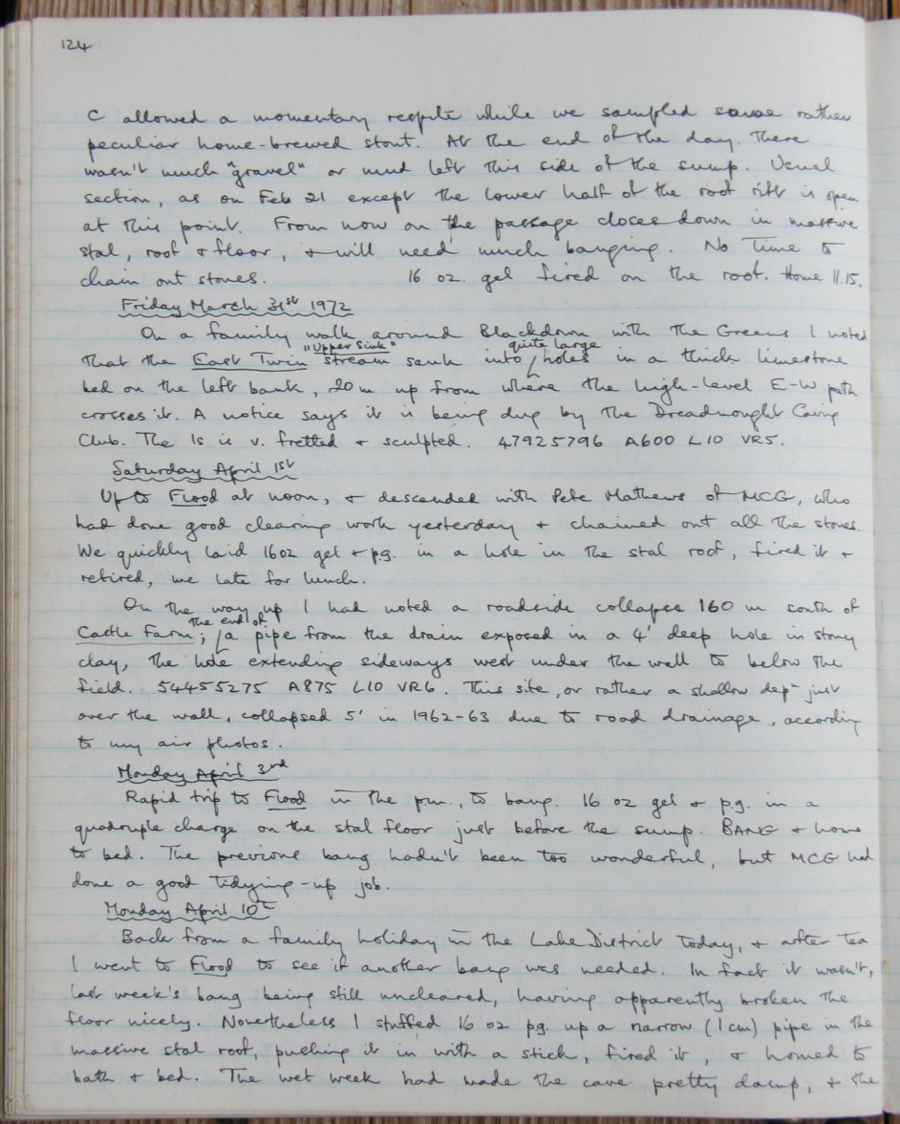 124
C allowed a momentary respite while we sampled some rather
peculiar home-brewed stout. At the end of the day. There
wasn't much "gravel" or mud left this side of the sump. Usual
section, as on Feb 21 except the lower half of the roof rift is open
at this point. From now on the passage closes down in massive
stal, roof & floor, & will need much banging. No time to
chain out stones. 16 oz. gel fired on the roof. Home 11.15.
Friday March 31st 1972
On a family walk around Blackdown with the Greens I noted
"Upper Sink" quite large
that the East Twin stream sank into holes in a thick limestone
bed on the left bank, 20 m up from where the high-level E-W path
crosses it. A notice says it is being dug by the Dreadnought Caving
Club. The ls is v. fretted & sculpted. 47925796 A600 L10 VR5.
Saturday April 1st
Up to Flood at noon, & descended with Pete Mathews of MCG, who
had done good clearing work yesterday & chained out all the stones.
We quickly laid 16oz gel & p.g. in a hole in the stal roof, fired it &
retired, me late for lunch.
On the way up I had noted a roadside collapse 160 m south of
the end of
Castle Farm; a pipe from the drain exposed in a 4' deep hole in stony
clay, the hole extending sideways west under the wall to below the
field. 54455275 A875 L10 VR6. This site, or rather a shallow depn just
over the wall, collapsed 5' in 1962-63 due to road drainage, according
to my air photos.
Monday April 3rd
Rapid trip to Flood in the pm., to bang. 16 oz gel & p.g. in a
quadruple charge on the stal floor just before the sump. BANG & home
to bed. The previous bang hadn't been too wonderful, but MCG had
done a good tidying-up job.
Monday April 10th
Back from a family holiday in the Lake District today, & after tea
I went to Flood to see if another bang was needed. In fact it wasn't,
last week's bang being still uncleared, having apparently broken the
floor nicely. Nonetheless I stuffed 16 oz pg. up a narrow (1cm) pipe in the
massive stal roof, pushing it in with a stick, fired it, & homed to
bath & bed. The wet week had made the cave pretty damp, & the